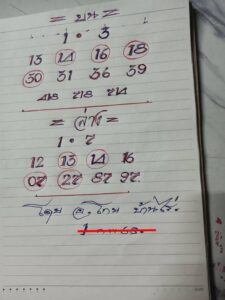 = บน =
1 • 3
13 14 16 18
30 31 36 39
= ล่าง =
1 • 7
12 13 14 16
07 27 87 97
โดย อ.โกย บ้านไร่.